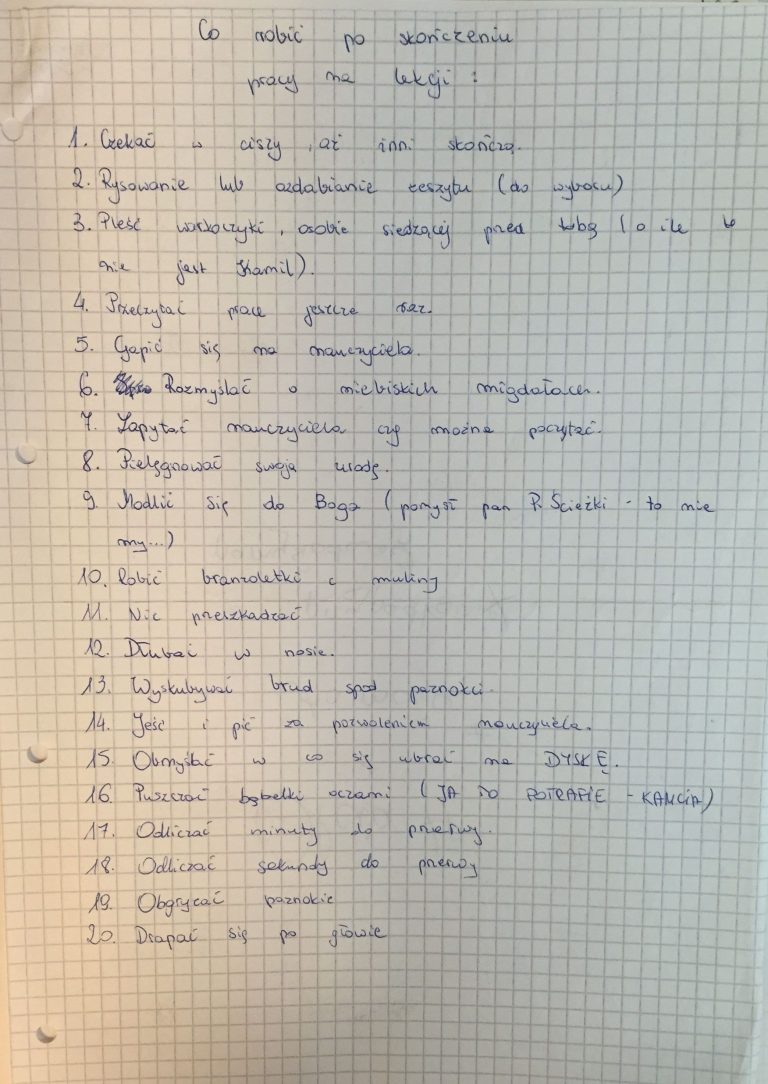 Co robić po skończeniu
pracy na lekcji :
1. Czekać w ciszy , aż inni skończą.
2. Rysowanie lub ozdabianie zeszytu (do wyboru)
3. Pleść warkoczyki, osobie siedzącej przed tobą (o ile to
nie jest Kamil).
4. Przeczytać prace jeszcze raz.
5. Gapić się na nauczyciela.
6. Rozmyślać o niebiskich migdałach.
7. Zapytać nauczyciela czy można poczytać.
8. Pielęgnować swoją urodę.
9. Modlić się do Boga (pomysł pan P. Ścieżki - to nie
my...)
10. Robić branzoletki z muliny
11. Nic przeszkadzać
12. Dłubać w nosie.
13. Wyskubywać brud spod paznokci.
14. Jeść i pić za pozwoleniem nauczyciela.
15. Obmyślać w co się ubrać na DYSKĘ.
16. Puszczać bąbelki oczami (JA TO POTRAFIE - KAMCIA)
17. Odliczać minuty do przerwy.
18. Odliczać sekundy do przerwy
19. Obgryzać paznokie
20. Drapać się po głowie